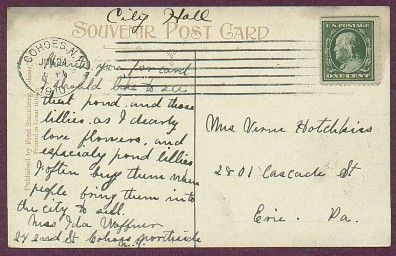 City Hall
SOUVENIR POST CARD
COHOES, N.Y.
JUN 24
1910
U.S. POSTAGE
ONE CENT
Thank you for card
I should like to see
that pond and those
lillies. as I dearly
love flowers. and
especialy pond lillies
I often buy them when
people bring them into
the city to sell.
Miss Ida Waffner
24 2nd St Cohoes
N.Y.
Mrs Verne Hotchkiss
2801 Cascade St
Erie. Pa.